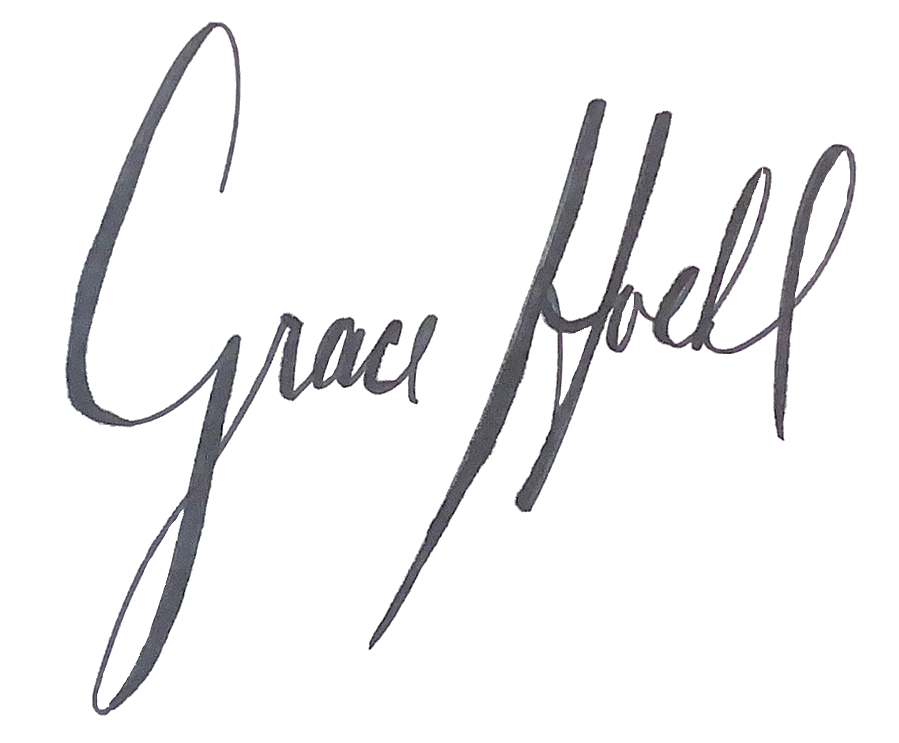 Grace Hoehl